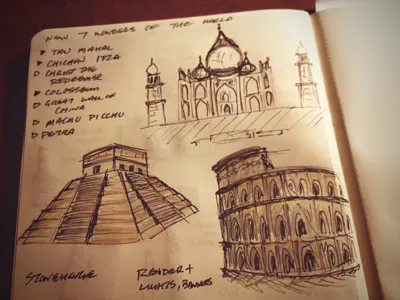 NEW 7 WONDERS OF THE WORLD
TAJ MAHAL
CHICHEN ITZA
CHRIST THE
REDEEMER
COLOSSEUM
GREAT WALL OF
CHINA
MACHU PICCHU
PETRA
STONEHENGE
RENDER +
LIGHTS,